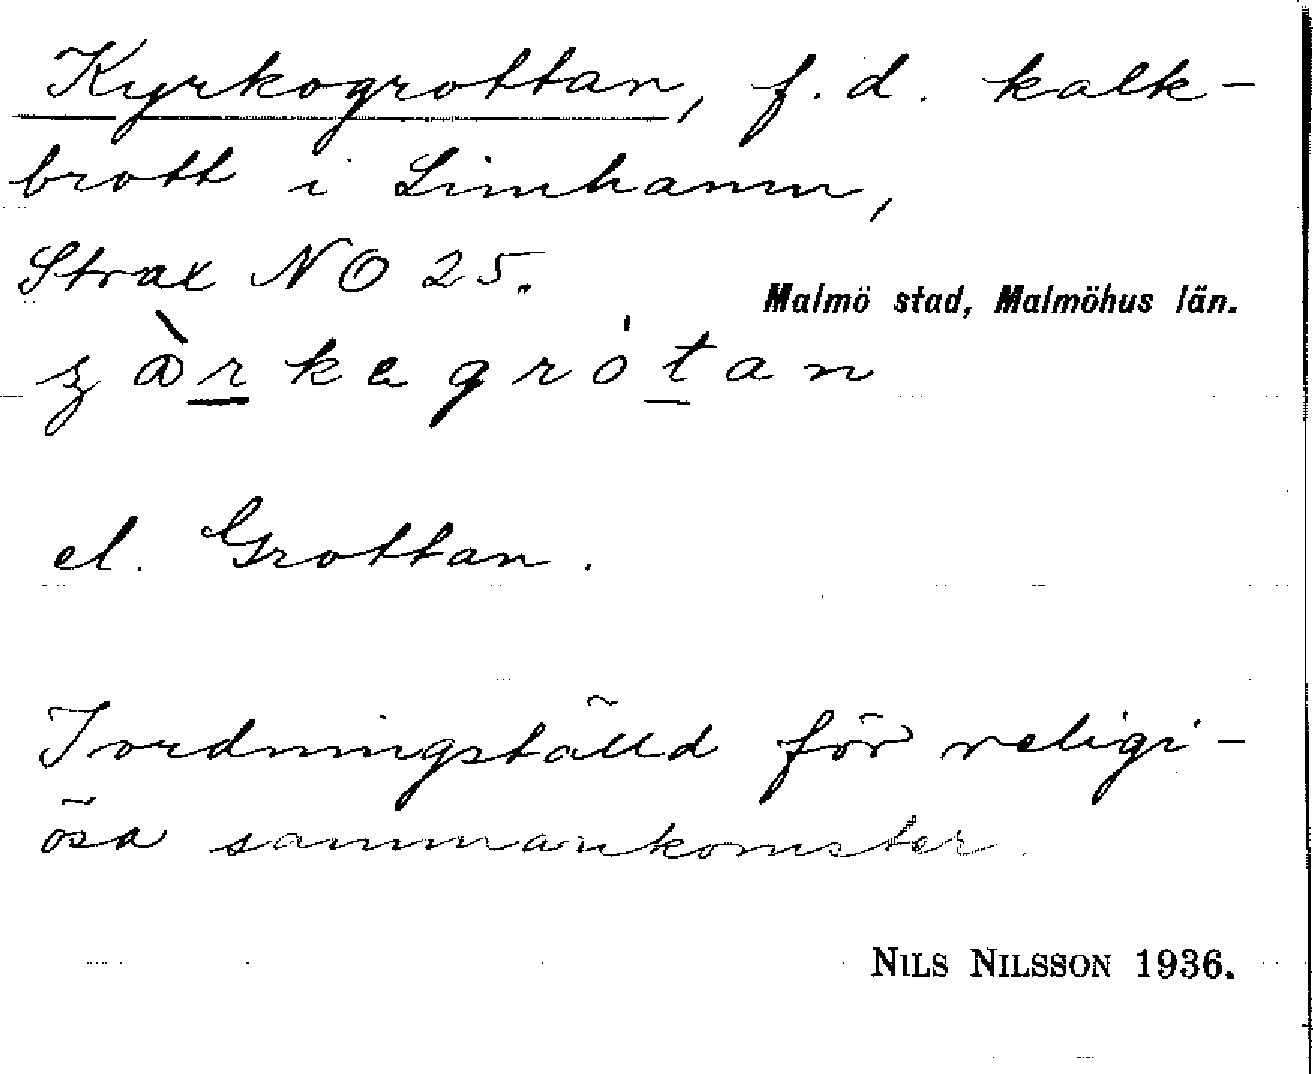 Kyrkogrottan, f.d. kalk-
brott i Limhamn,
Strax NO 25.
Malmö stad, Malmöhus län.
el. Grottan.
Iordningställd för religi-
ösa sammankomster.
NILS NILSSON 1936.